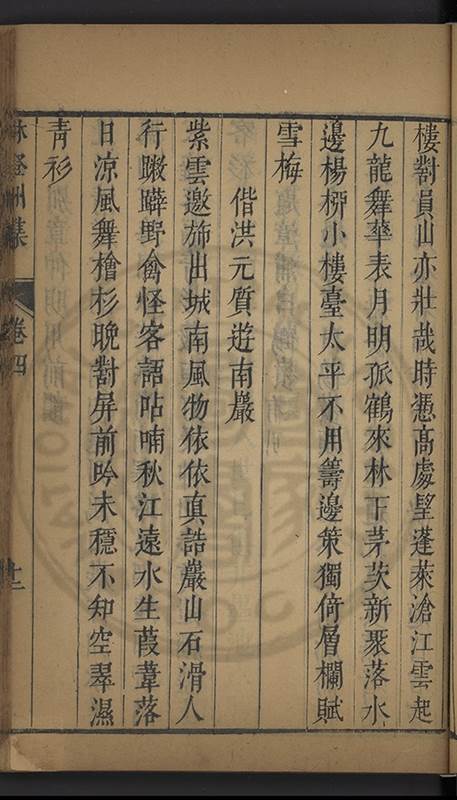 樓對員山亦壯哉時憑高處望蓬萊滄江雲起
九龍舞華表月明孤鶴來林下茅茨新聚落水
邊楊栁小樓臺太平不用籌邊策獨倚層欄賦
雪梅
偕洪元質遊南巖
紫雲邀斾出城南風物依依真誥巖山石滑人
行蹴野禽怪客語呫喃秋江遠水生葭葦落
日涼風舞檜杉晩對屏前吟未穩不知空翠濕
青衫
林登州集
卷四
十二